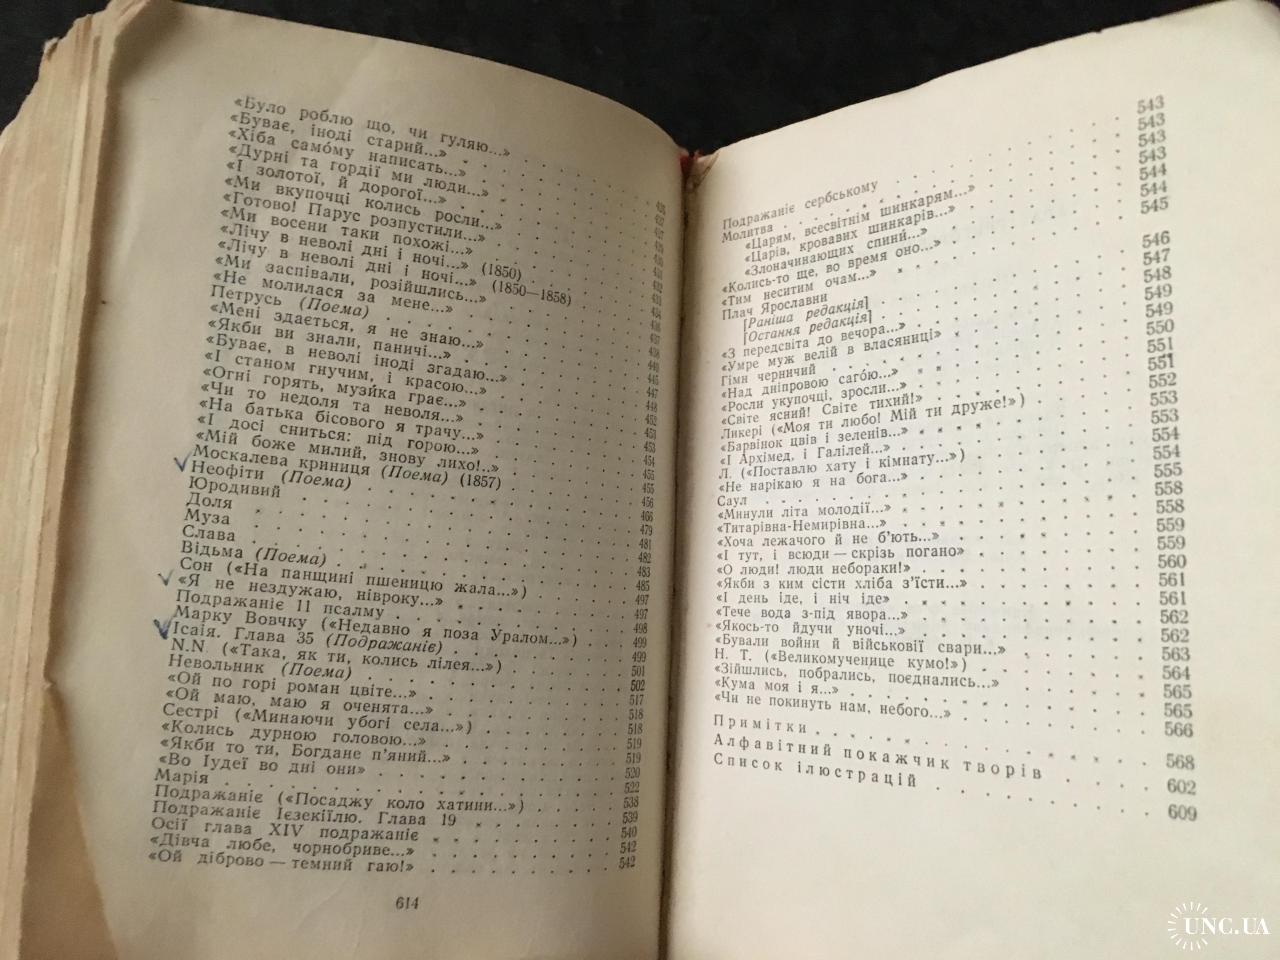 «Було роблю що, чи гуляю...»
«Буває, іноді старий...»
«Хіба самóму написать...»
«Дурні та гордії ми люди...»
«І золотої, й дорогої...»
«Ми вкупочці колись росли...»
«Готово! Парус розпустили...»
«Ми восени таки похожі...»
«Лічу в неволі дні і ночі...» (1850)
«Лічу в неволі дні і ночі...» (1850—1858)
«Ми заспівали, розійшлись...»
«Не молилася за мене...»
Петрусь (Поема)
«Мені здається, я не знаю...»
«Якби ви знали, паничі...»
«Буває, в неволі іноді згадаю...»
«І станом гнучим, і красою...»
«Огні горять, музи́ка грає...»
«Чи то недоля та неволя...»
«На батька бісового я трачу...»
«І досі сниться: під горою...»
«Мій боже милий, знову лихо!..» 455
Москалева криниця (Поема) (1857) 456
Неофіти (Поема) 466
Юродивий 479
Доля 481
Муза 482
Слава 483
Відьма (Поема) 485
Сон («На панщині пшеницю жала...») 497
«Я не нездужаю, нівроку...» 497
Подражаніє 11 псалму 498
Марку Вовчку («Недавно я поза Уралом...») 499
Ісаія. Глава 35 (Подражаніє) 499
N.N. («Така, як ти, колись лілея...») 501
Невольник (Поема) 502
«Ой по горі роман цвіте...» 517
«Ой маю, маю я оченята...» 518
Сестрі («Минаючи убогі села...») 518
«Колись дурною головою...» 519
«Якби то ти, Богдане п'яний...» 519
«Во Іудеї во дні они» 520
Марія 522
Подражаніє («Посаджу коло хатини...») 538
Подражаніє Ієзекіїлю. Глава 19 539
Осії глава XIV подражаніє 540
«Дівча любе, чорнобриве...» 542
«Ой діброво — темний гаю!» 542
614
Подражаніє сербському 543
Молитва 543
«Царям, всесвітнім шинкарям...» 543
«Царів, кровавих шинкарів...» 543
«Злоначинающих спини́...» 544
«Колись-то ще, во время оно...» 544
«Тим неситим очам...» 545
Плач Ярославни
[Раніша редакція] 546
[Остання редакція] 547
«З передсвіта до вечора...» 548
«Умре муж велій в власяниці» 549
Гімн черничий 549
«Над дніпровою сагóю...» 550
«Росли укупочці, зросли...» 551
«Світе ясний! Світе тихий!» 551
Ликері («Моя ти любо! Мій ти друже!») 552
«Барвінок цвів і зеленів...» 553
«І Архімед, і Галілей...» 553
Л. («Поставлю хату і кімнату...») 554
«Не нарікаю я на бога...» 554
Саул 555
«Минули літа молодії...» 558
«Титарівна-Немирівна...» 558
«Хоча лежачого й не б'ють...» 559
«І тут, і всюди — скрізь погано» 559
«О люди! люди небораки!» 560
«Якби з ким сісти хліба з'їсти...» 561
«І день іде, і ніч іде» 561
«Тече вода з-під явора...» 562
«Якось-то йдучи уночі...» 562
«Бували войни й військовії свари...» 563
Н. Т. («Великомученице кумо!») 564
«Зійшлись, побрались, поєднались...» 565
«Кума моя і я...» 565
«Чи не покинуть нам, небого...» 566
Примітки 568
Алфавітний покажчик творів 602
Список ілюстрацій 609
UNC.UA